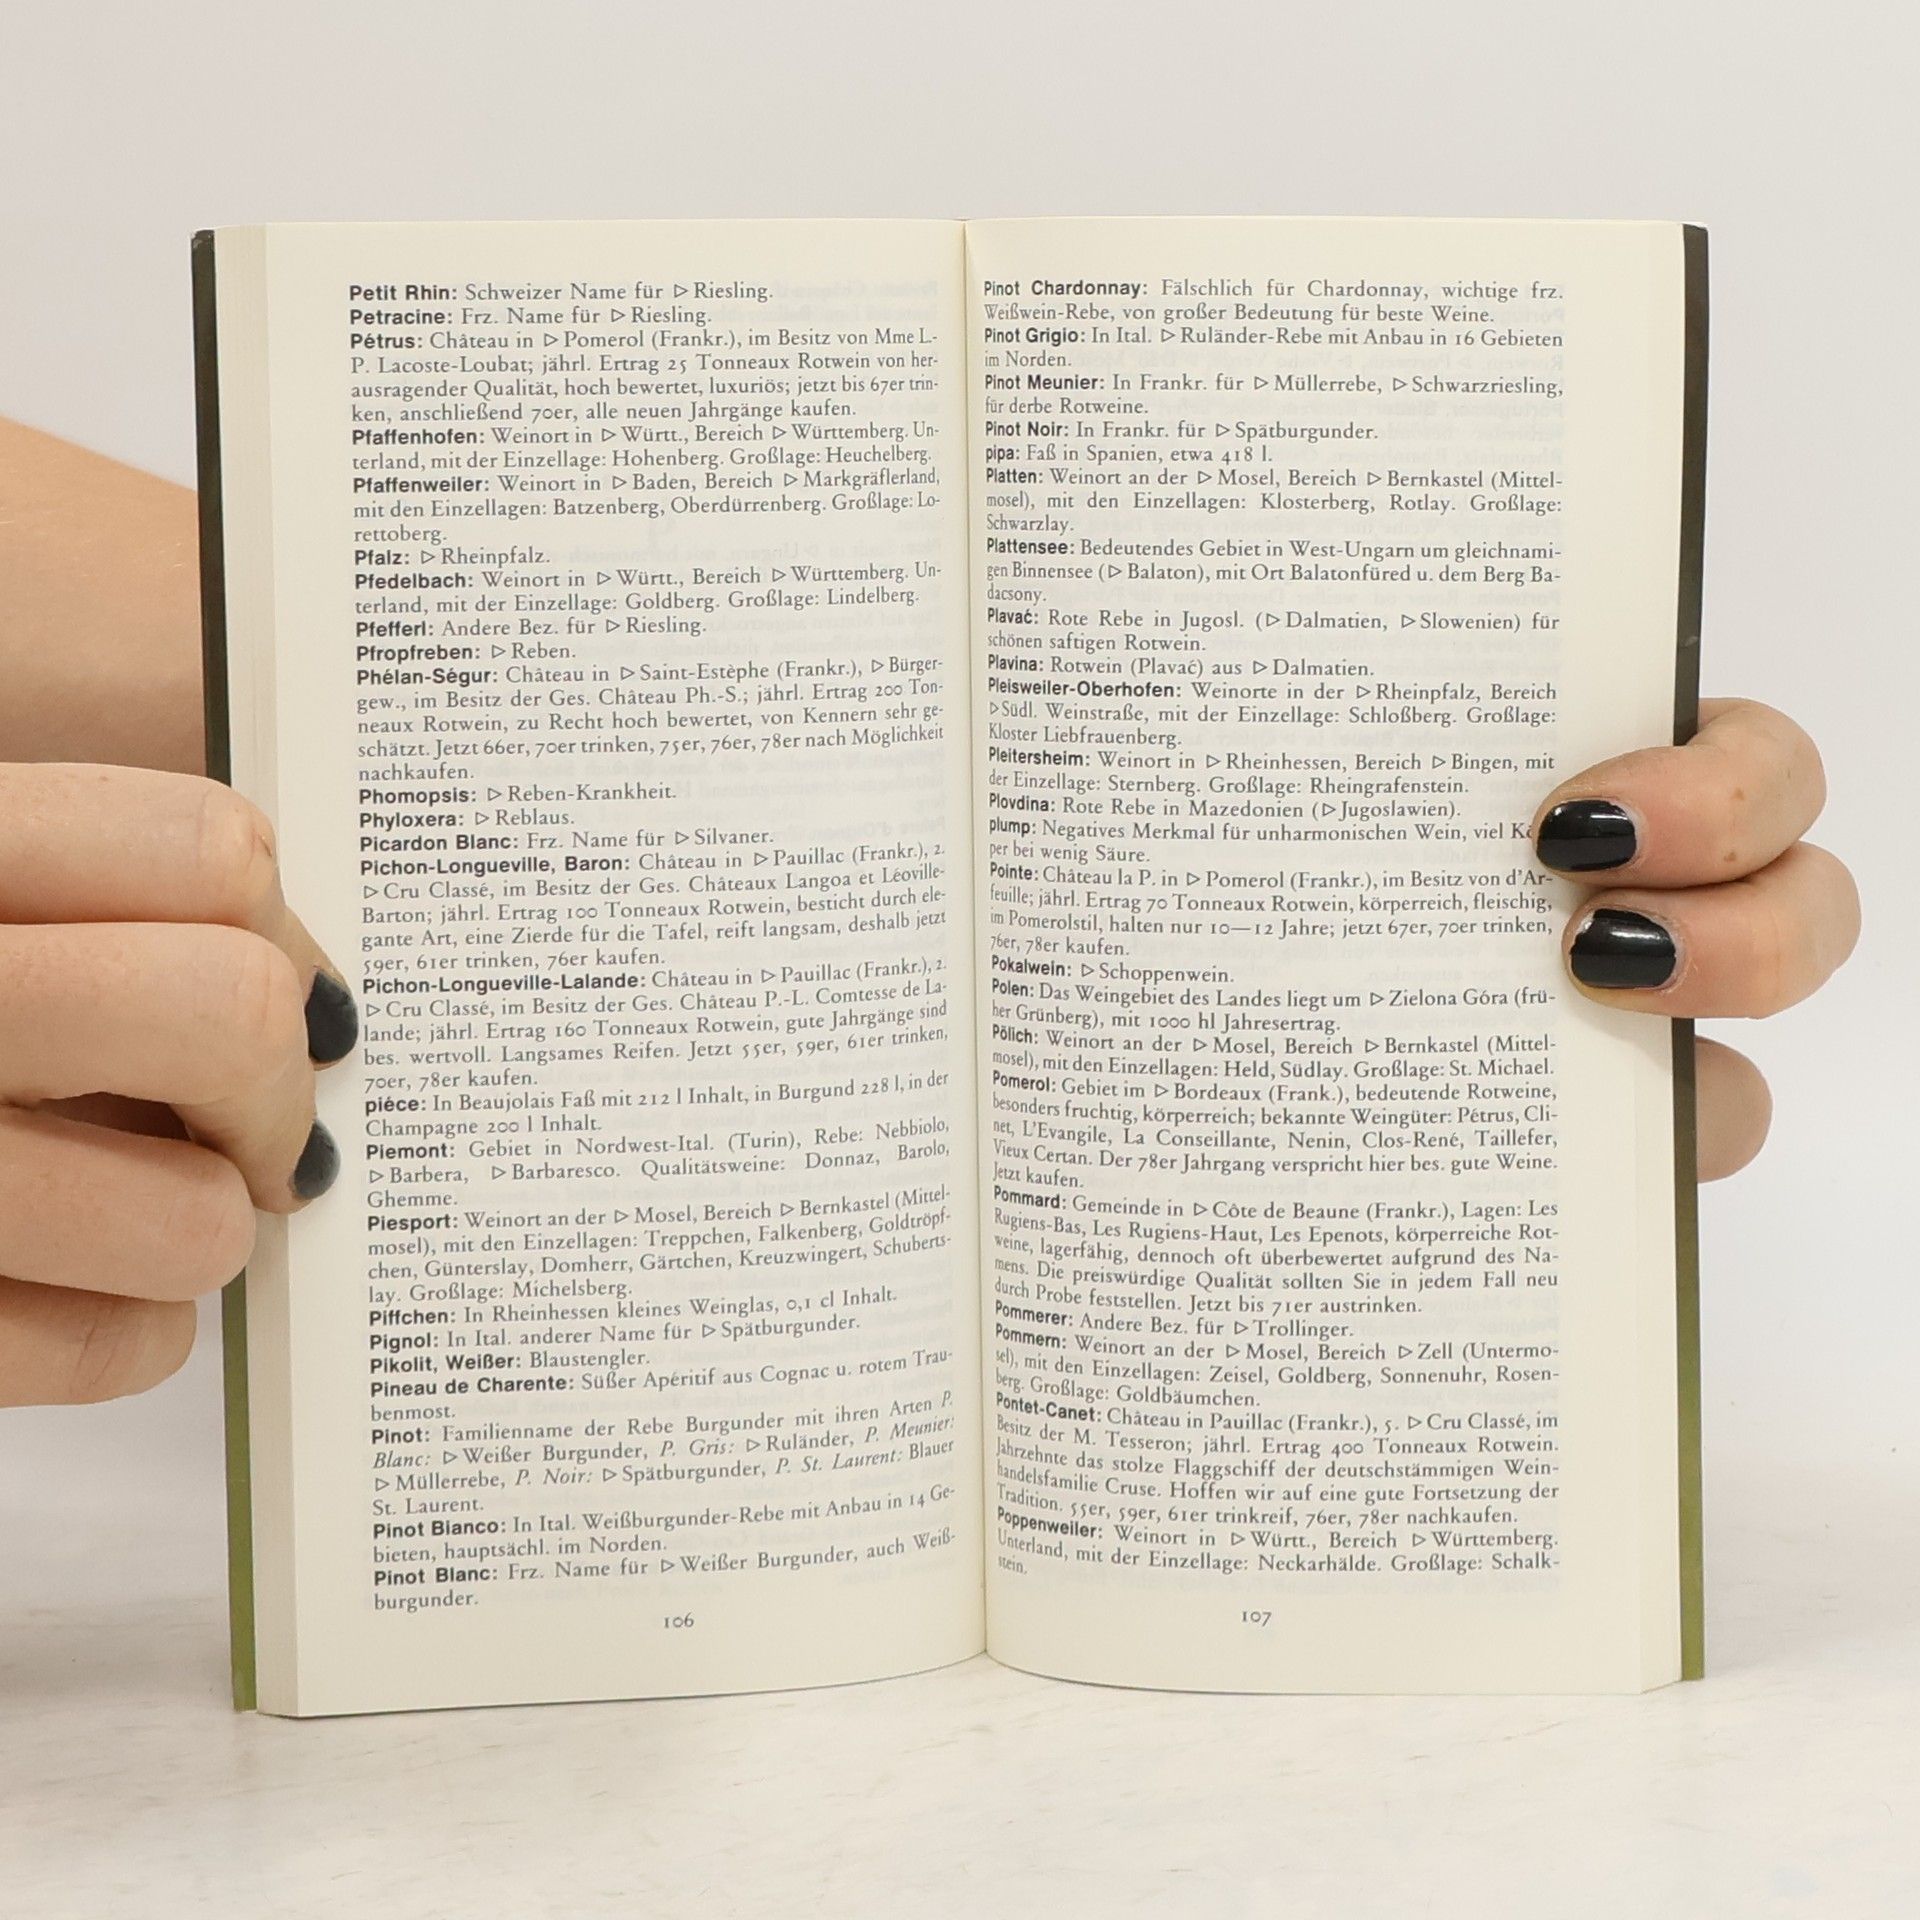 Petit Rhin: Schweizer Name für ▷ Riesling.
Petracine: Frz. Name für ▷ Riesling.
Pétrus: Château in ▷ Pomerol (Frankr.), im Besitz von Mme L.-
P. Lacoste-Loubat; jährl. Ertrag 25 Tonneaux Rotwein von her-
ausragender Qualität, hoch bewertet, luxuriös; jetzt bis 67er trin-
ken, anschließend 70er, alle neuen Jahrgänge kaufen.
Pfaffenhofen: Weinort in ▷ Württ., Bereich ▷ Württemberg. Un-
terland, mit der Einzellage: Hohenberg. Großlage: Heuchelberg.
Pfaffenweiler: Weinort in ▷ Baden, Bereich ▷ Markgräflerland,
mit den Einzellagen: Batzenberg, Oberdürrenberg. Großlage: Lo-
rettoberg.
Pfalz: ▷ Rheinpfalz.
Pfedelbach: Weinort in ▷ Württ., Bereich ▷ Württemberg. Un-
terland, mit der Einzellage: Goldberg. Großlage: Lindelberg.
Pfefferl: Andere Bez. für ▷ Riesling.
Pfropfreben: ▷ Reben.
Phélan-Ségur: Château in ▷ Saint-Estèphe (Frankr.), ▷ Bürger-
gew., im Besitz der Ges. Château Ph.-S.; jährl. Ertrag 200 Ton-
neaux Rotwein, zu Recht hoch bewertet, von Kennern sehr ge-
schätzt. Jetzt 66er, 70er trinken, 75er, 76er, 78er nach Möglichkeit
nachkaufen.
Phomopsis: ▷ Reben-Krankheit.
Phyloxera: ▷ Reblaus.
Picardon Blanc: Frz. Name für ▷ Silvaner.
Pichon-Longueville, Baron: Château in ▷ Pauillac (Frankr.), 2.
▷ Cru Classé, im Besitz der Ges. Châteaux Langoa et Léoville-
Barton; jährl. Ertrag 100 Tonneaux Rotwein, besticht durch ele-
gante Art, eine Zierde für die Tafel, reift langsam, deshalb jetzt
59er, 61er trinken, 76er kaufen.
Pichon-Longueville-Lalande: Château in ▷ Pauillac (Frankr.), 2.
▷ Cru Classé, im Besitz der Ges. Château P.-L. Comtesse de La-
lande; jährl. Ertrag 160 Tonneaux Rotwein, gute Jahrgänge sind
bes. wertvoll. Langsames Reifen. Jetzt 55er, 59er, 61er trinken,
70er, 78er kaufen.
piéce: In Beaujolais Faß mit 212 l Inhalt, in Burgund 228 l, in der
Champagne 200 l Inhalt.
Piemont: Gebiet in Nordwest-Ital. (Turin), Rebe: Nebbiolo,
▷ Barbera, ▷ Barbaresco. Qualitätsweine: Donnaz, Barolo,
Ghemme.
Piesport: Weinort an der ▷ Mosel, Bereich ▷ Bernkastel (Mittel-
mosel), mit den Einzellagen: Treppchen, Falkenberg, Goldtröpf-
chen, Günterslay, Domherr, Gärtchen, Kreuzwingert, Schuberts-
lay. Großlage: Michelsberg.
Piffchen: In Rheinhessen kleines Weinglas, 0,1 cl Inhalt.
Pignol: In Ital. anderer Name für ▷ Spätburgunder.
Pikolit, Weißer: Blaustengler.
Pineau de Charente: Süßer Apéritif aus Cognac u. rotem Trau-
benmost.
Pinot: Familienname der Rebe Burgunder mit ihren Arten P.
Blanc: ▷ Weißer Burgunder, P. Gris: ▷ Ruländer, P. Meunier:
▷ Müllerrebe, P. Noir: ▷ Spätburgunder, P. St. Laurent: Blauer
St. Laurent.
Pinot Bianco: In Ital. Weißburgunder-Rebe mit Anbau in 14 Ge-
bieten, hauptsächl. im Norden.
Pinot Blanc: Frz. Name für ▷ Weißer Burgunder, auch Weiß-
burgunder.
106
Pinot Chardonnay: Fälschlich für Chardonnay, wichtige frz.
Weißwein-Rebe, von großer Bedeutung für beste Weine.
Pinot Grigio: In Ital. ▷ Ruländer-Rebe mit Anbau in 16 Gebieten
im Norden.
Pinot Meunier: In Frankr. für ▷ Müllerrebe, ▷ Schwarzriesling,
für derbe Rotweine.
Pinot Noir: In Frankr. für ▷ Spätburgunder.
pipa: Faß in Spanien, etwa 418 l.
Platten: Weinort an der ▷ Mosel, Bereich ▷ Bernkastel (Mittel-
mosel), mit den Einzellagen: Klosterberg, Rotlay. Großlage:
Schwarzlay.
Plattensee: Bedeutendes Gebiet in West-Ungarn um gleichnami-
gen Binnensee (▷ Balaton), mit Ort Balatonfüred u. dem Berg Ba-
dacsony.
Plavać: Rote Rebe in Jugosl. (▷ Dalmatien, ▷ Slowenien) für
schönen saftigen Rotwein.
Plavina: Rotwein (Plavać) aus ▷ Dalmatien.
Pleisweiler-Oberhofen: Weinorte in der ▷ Rheinpfalz, Bereich
▷ Südl. Weinstraße, mit der Einzellage: Schloßberg. Großlage:
Kloster Liebfrauenberg.
Pleitersheim: Weinort in ▷ Rheinhessen, Bereich ▷ Bingen, mit
der Einzellage: Sternberg. Großlage: Rheingrafenstein.
Plovdina: Rote Rebe in Mazedonien (▷ Jugoslawien).
plump: Negatives Merkmal für unharmonischen Wein, viel
per bei wenig Säure.
Pointe: Château la P. in ▷ Pomerol (Frankr.), im Besitz von d'Ar-
feuille; jährl. Ertrag 70 Tonneaux Rotwein, körperreich, fleischig,
im Pomerolstil, halten nur 10—12 Jahre; jetzt 67er, 70er trinken,
76er, 78er kaufen.
Pokalwein: ▷ Schoppenwein.
Polen: Das Weingebiet des Landes liegt um ▷ Zielona Góra (frü-
her Grünberg), mit 1000 hl Jahresertrag.
Pölich: Weinort an der ▷ Mosel, Bereich ▷ Bernkastel (Mittel-
mosel), mit den Einzellagen: Held, Südlay. Großlage: St. Michael.
Pomerol: Gebiet im ▷ Bordeaux (Frank.), bedeutende Rotweine,
besonders fruchtig, körperreich; bekannte Weingüter: Pétrus, Cli-
net, L'Evangile, La Conseillante, Nenin, Clos-René, Taillefer,
Vieux Certan. Der 78er Jahrgang verspricht hier bes. gute Weine.
Jetzt kaufen.
Pommard: Gemeinde in ▷ Côte de Beaune (Frankr.), Lagen: Les
Rugiens-Bas, Les Rugiens-Haut, Les Epenots, körperreiche Rot-
weine, lagerfähig, dennoch oft überbewertet aufgrund des Na-
mens. Die preiswürdige Qualität sollten Sie in jedem Fall neu
durch Probe feststellen. Jetzt bis 71er austrinken.
Pommerer: Andere Bez. für ▷ Trollinger.
Pommern: Weinort an der ▷ Mosel, Bereich ▷ Zell (Untermo-
sel), mit den Einzellagen: Zeisel, Goldberg, Sonnenuhr, Rosen-
berg. Großlage: Goldbäumchen.
Pontet-Canet: Château in Pauillac (Frankr.), 5. ▷ Cru Classé, im
Besitz der M. Tesseron; jährl. Ertrag 400 Tonneaux Rotwein.
Jahrzehnte das stolze Flaggschiff der deutschstämmigen Wein-
handelsfamilie Cruse. Hoffen wir auf eine gute Fortsetzung der
Tradition. 55er, 59er, 61er trinkreif, 76er, 78er nachkaufen.
Poppenweiler: Weinort in ▷ Württ., Bereich ▷ Württemberg.
Unterland, mit der Einzellage: Neckarhälde. Großlage: Schalk-
stein.
107